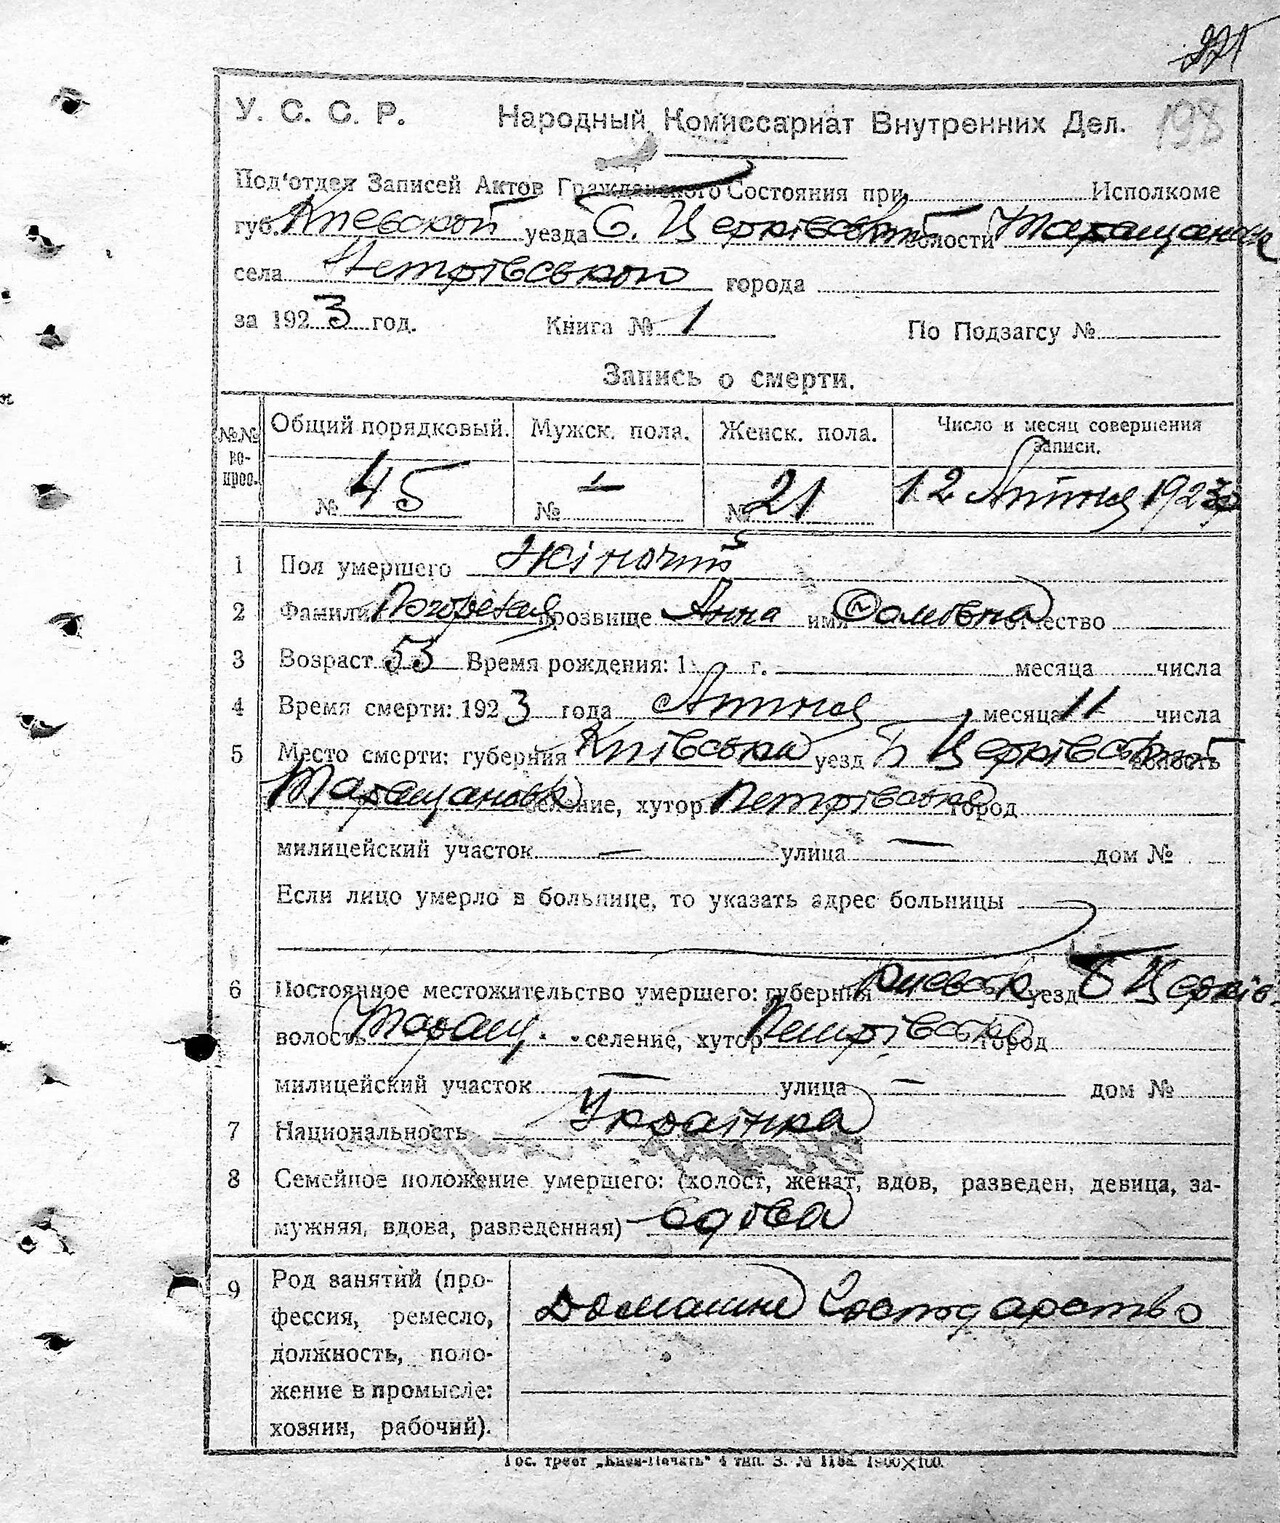 198
У. С. С. Р. Народный Комиссариат Внутренних Дел.
Под'отдел Записей Актов Гражданского Состояния при Исполкоме
губ. Киевской уезда Б. Церківський волости Таращанськ
села Петрівського города
за 1923 год. Книга № 1 По Подзагсу №
Запись о смерти.
№№ вопрос. Общий порядковый. Мужск. пола. Женск. пола. Число и месяц совершения записи.
№ 45 № — № 21 12 1923
1 Пол умершего Жіночий
2 Фамилия прозвище Анна имя отчество
3 Возраст 53 Время рождения: 1 г. месяца числа
4 Время смерти: 1923 года месяца 11 числа
5 Место смерти: губерния Київська уезд Б Церківський волость
Таращанськ селение, хутор Петрівська город
милицейский участок — улица — дом №
Если лицо умерло в больнице, то указать адрес больницы
6 Постоянное местожительство умершего: губерния Киевськ уезд Б Церків
волость Таращ. селение, хутор Петрівська город
милицейский участок — улица — дом №
7 Национальность Українка
8 Семейное положение умершего: (холост, женат, вдов, разведен, девица, за-
мужняя, вдова, разведенная) вдова
9 Род занятий (про-
фессия, ремесло, Домашнє Господарство
должность, поло-
жение в промысле:
хозяин, рабочий).
Гос. трест „Киев-Печать" 4 тип. З. №